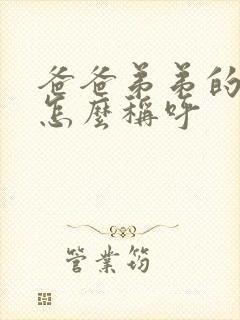 爸爸弟弟的
怎麼稱呼
管業筠